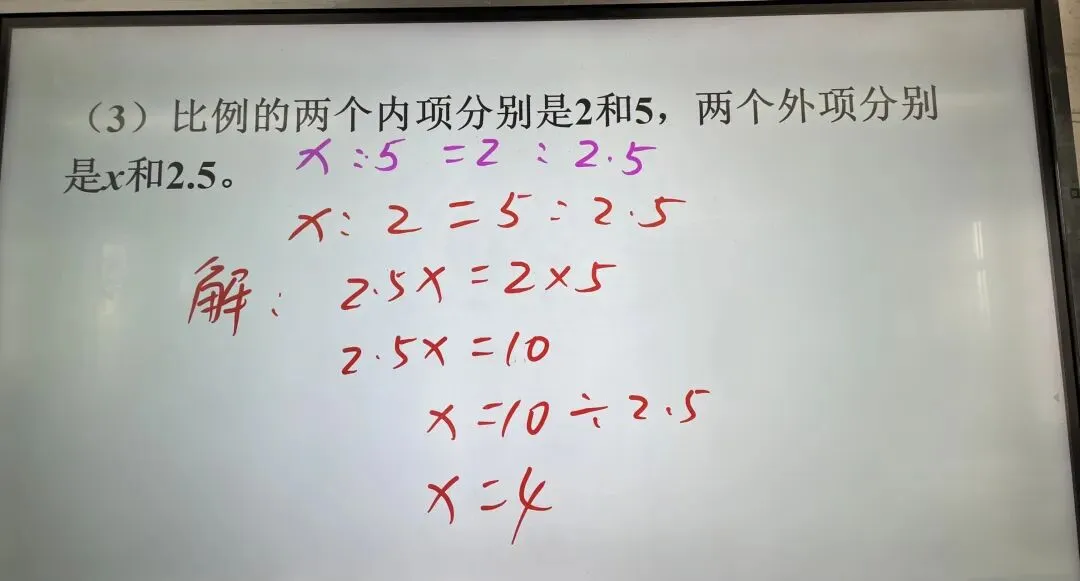 （3）比例的两个内项分别是2和5，两个外项分别
是x和2.5。
x:5=2:2.5
x:2=5:2.5
解：2.5x=2×5
2.5x=10
x=10÷2.5
x=4